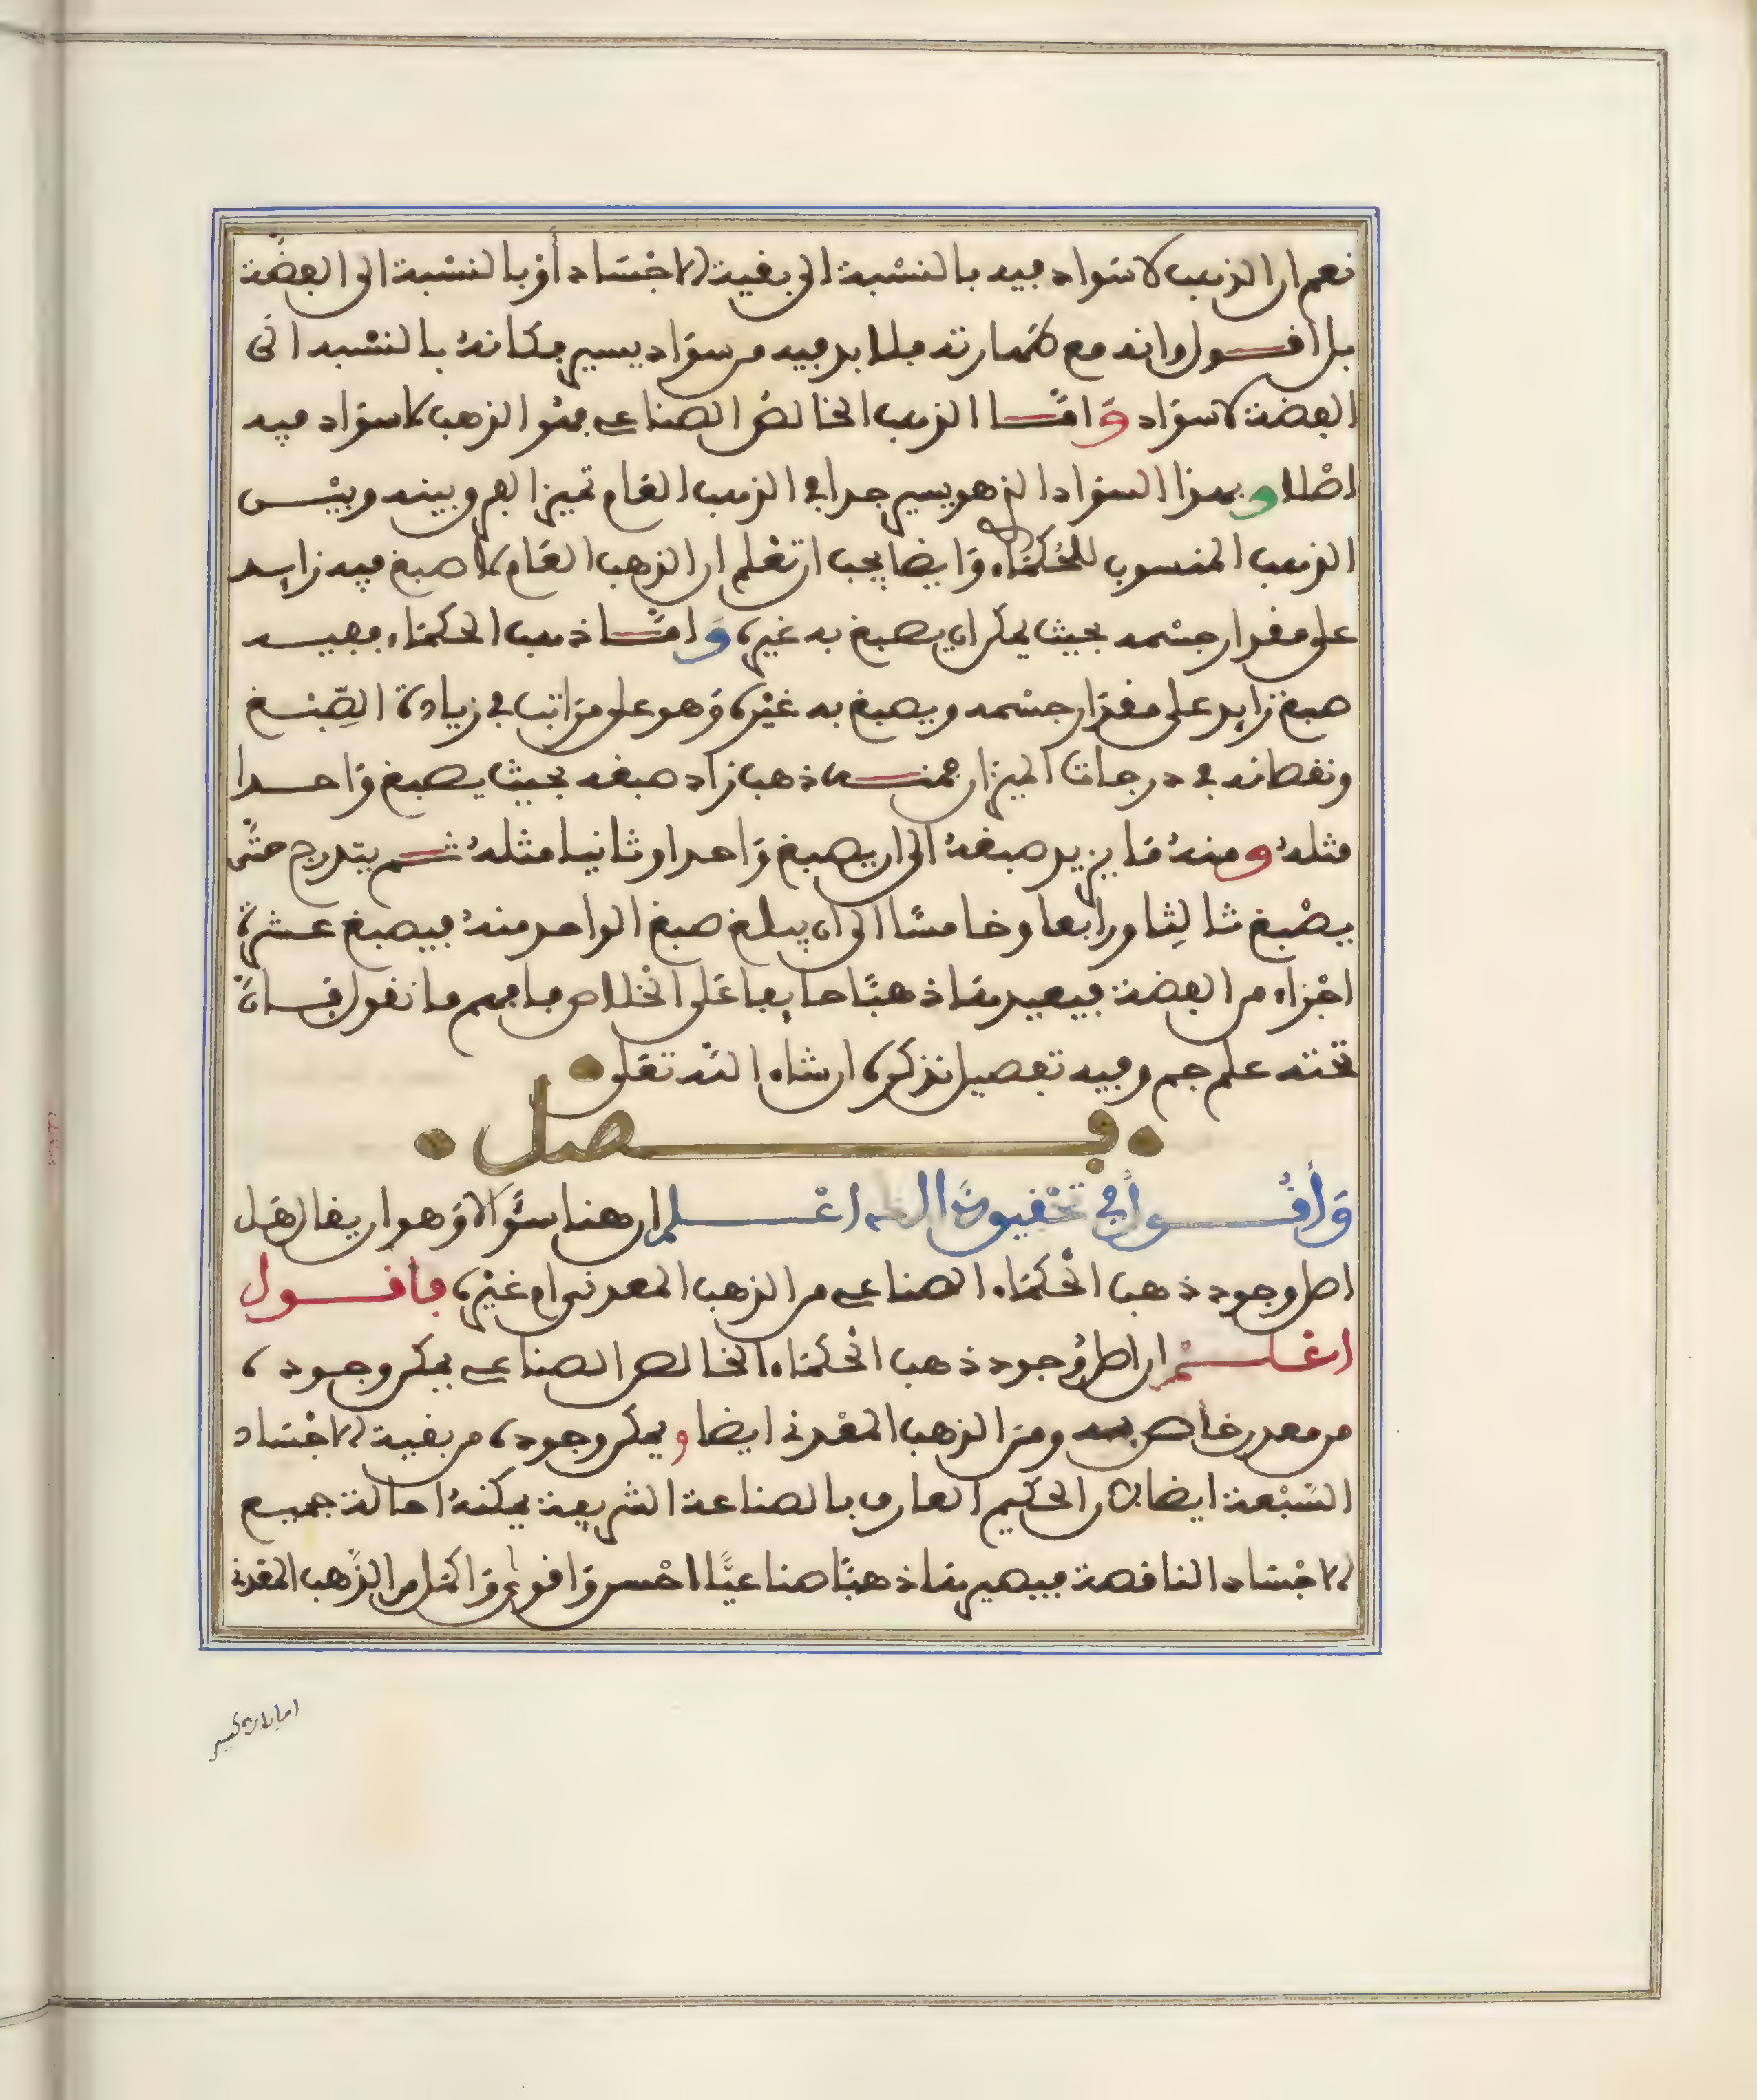 نعم ان الذهب لا سَواد فيه بالنسْبة الى بقية الاجْسَاد أوْ بالنسْبة الى الفضّة
بل اقول وانه مع طهارته فلا بد فيه من سوَاد يسير فكانهُ بالنسْبه الى
الفضة لا سوَاد وَامّا الذهب الخالصُ الصناعي فهُو الذهب لا سوَاد فيه
اصْلا وبهذا السوَاد الذي هو يسير جدا في الذهب العَام تميز الفرق بينه وبيْن
الذهب المنسوب للحُكمَاء وَايضا يجب ان تعْلم ان الذهب العَام لا صبغ فيه زايد
على مقدار جسْمه بحيث يمكن ان يصبغ به غيره وَامّا ذهب الحكمَاء ففيه
صبغ زايد على مقدَار جسْمه ويصبغ به غيْره وَهو على مرَاتب في زيادة الصِّبْغ
ونقصانه في درجات الميزَان فمنه ذهب زاد صبغه بحيث يصبغ وَاحدا
مثلهُ ومنهُ مَا يزيد صبغهُ الى ان يصبغ وَاحدا وثانيا مثلهُ ثم يتدرج حتّى
يصْبغ ثالِثا ورَابعا وخامسًا الى ان يبلغ صبغ الواحد منهُ فيصبغ عشرة
اجْزاء من الفضة فيعيدها ذهبًا صابغا عَلى الخْلاص فافهم ما نقول فَانّ
تحته علم جم وفيه تفصيل نذكره ان شاء اللّه تعَلى
فصل
وَأقُول في تحْقيق اعْلم ان هنا سُؤَالا وَهو ان يقال هَل
اصل وجود ذهب الحُكمَاء الصناعي من الذهب المعدني ام غيْره فأقول
اعْلمْ ان اصل وُجود ذهب الحُكمَاء الخالص الصناعي يمكن وجوده
من معدن خاص به ومنَ الذهب المعْدني ايضا ويمكن وجوده من بقية الاجْسَاد
السَبْعة ايضا لان الحكيم العارف بالصناعة الشريفة يمكنهُ احالة جميع
الاجْسَاد الناقصة فيصيرها ذهبًا صناعيًّا احْسن وَاقوى وَاكمَل من الذّهب المعْدني